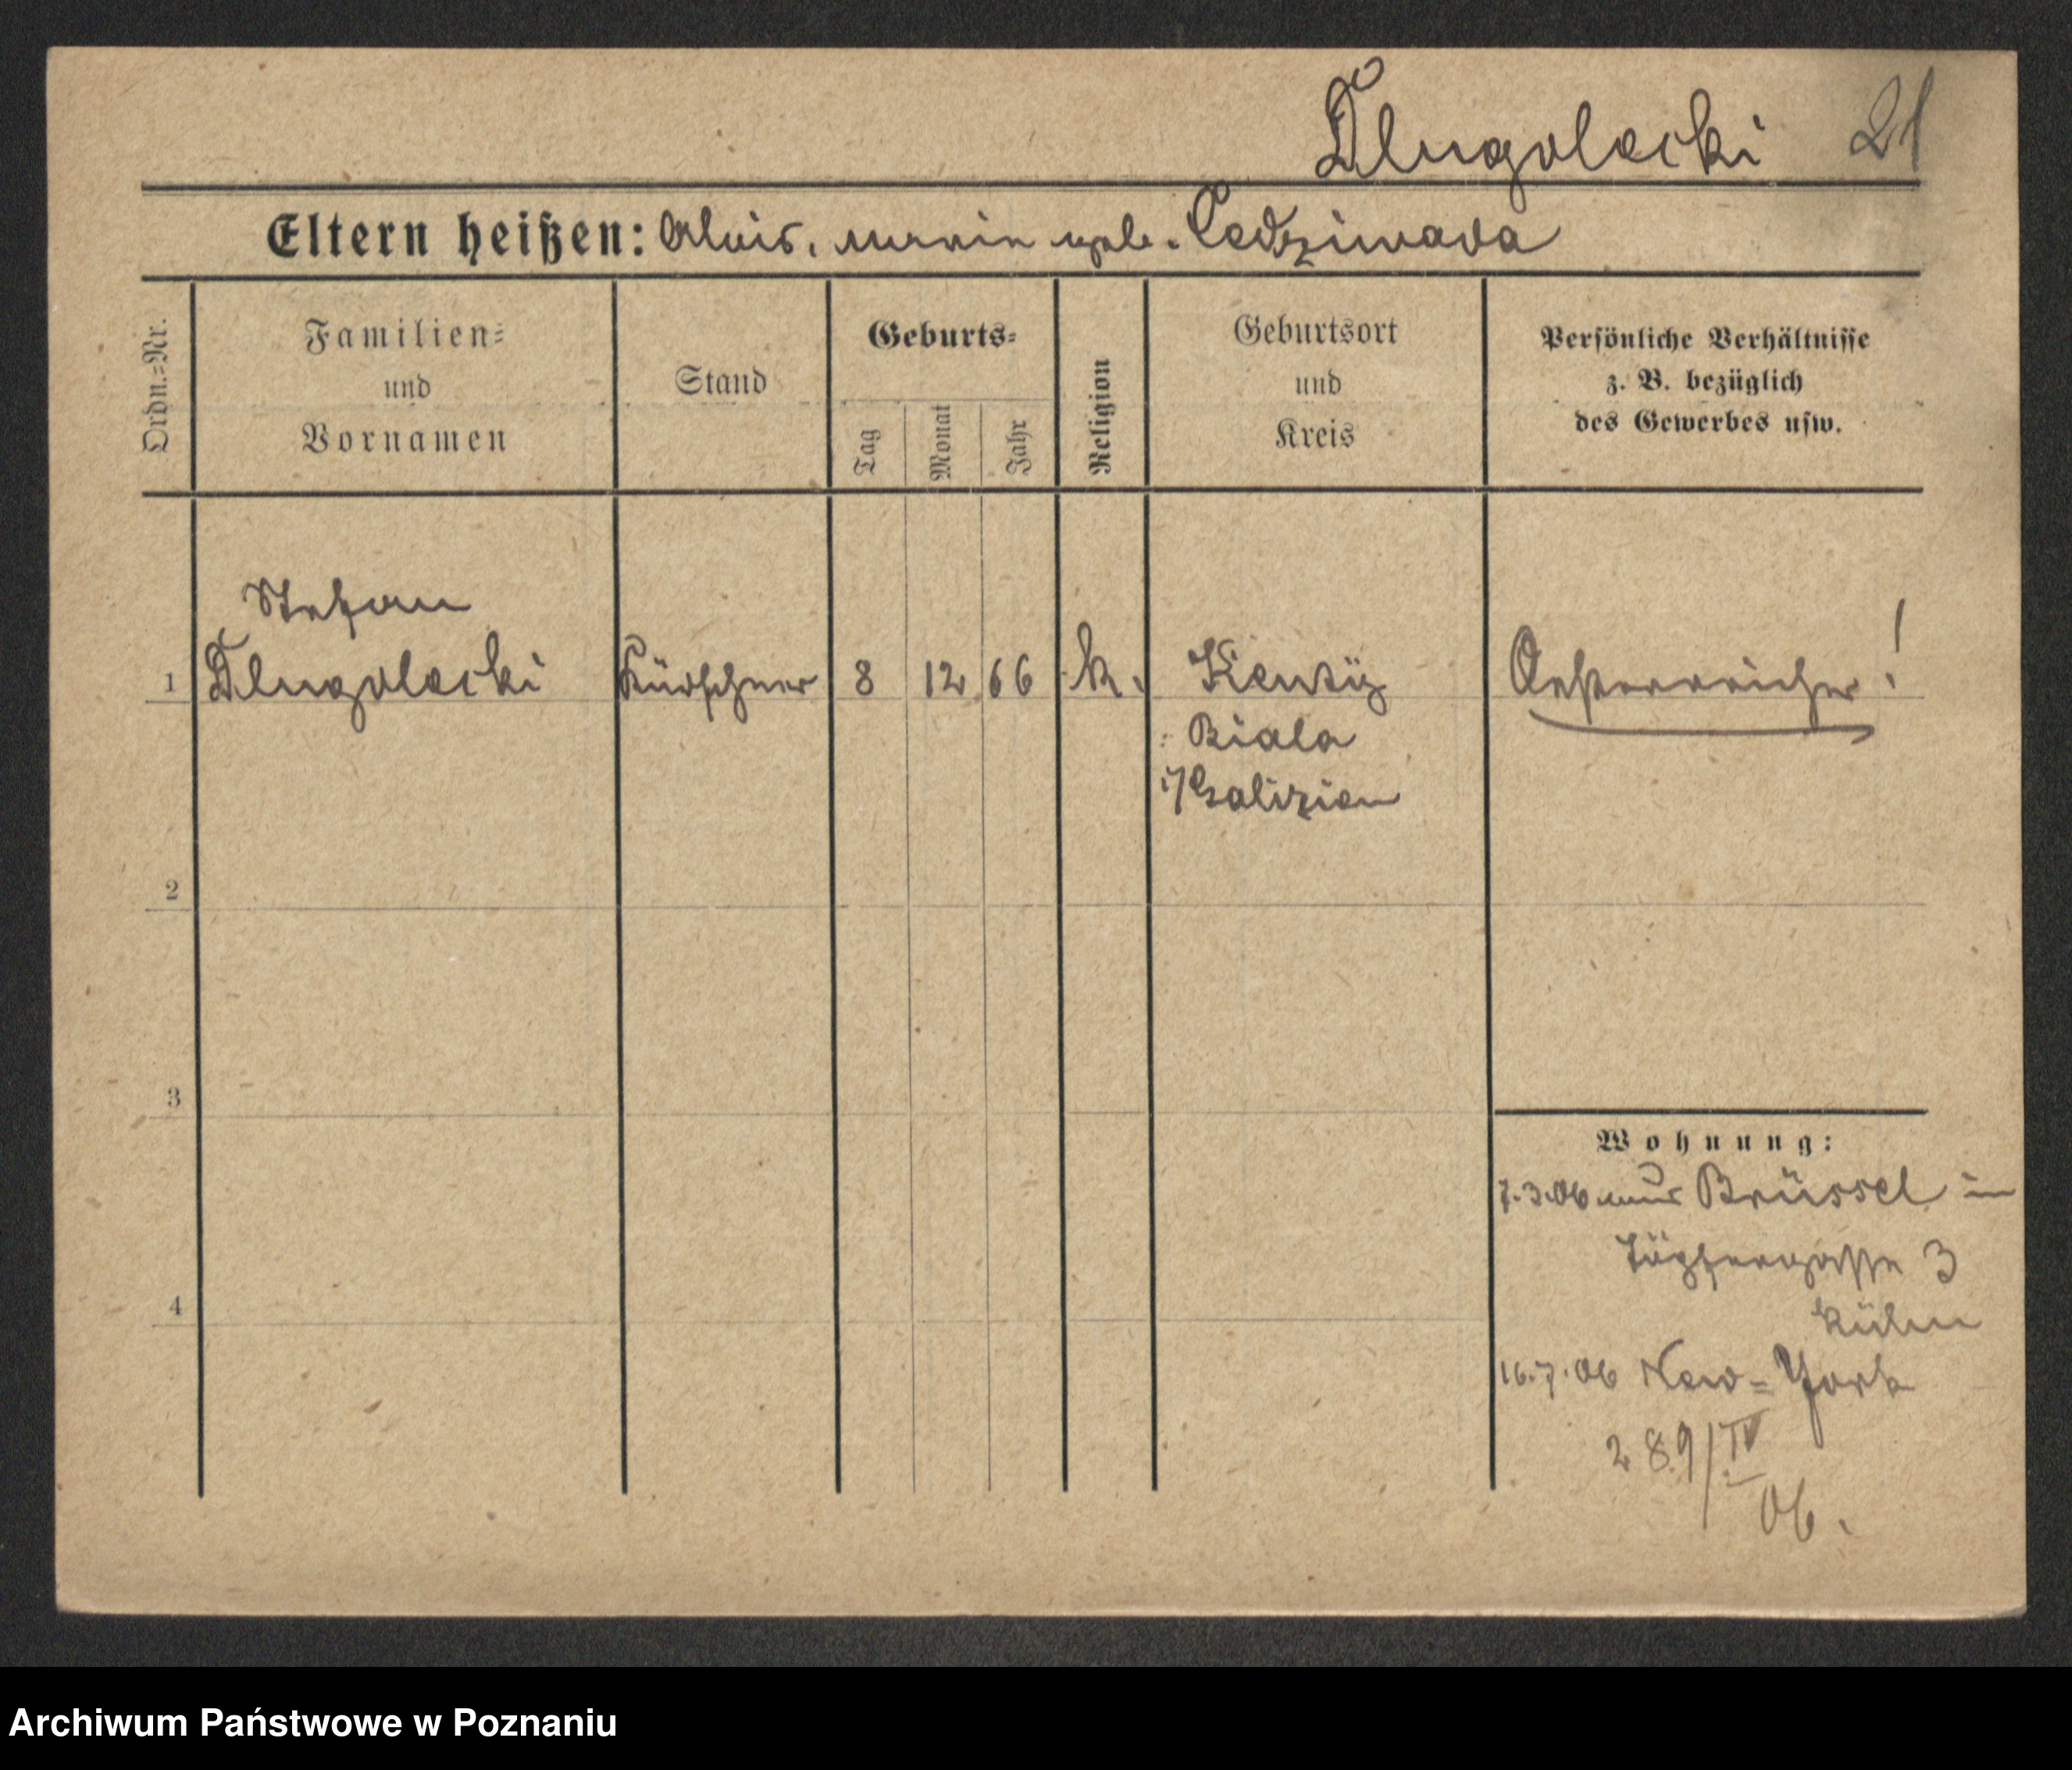 Dlugolecki 21
Eltern heißen: Alois, geb. Cedziwoda
Ordn.-Nr.
Familien-
und
Vornamen
Stand
Geburts-
Tag
Monat
Jahr
Religion
Geburtsort
und
Kreis
Persönliche Verhältnisse
z. B. bezüglich
des Gewerbes usw.
Stefan
1 Dlugolecki Kürschner 8 12 66 k. Oesterreicher!
Biala
i/Galizien
2
3
4
Wohnung:
7.3.06 aus Brüssel in
Töpfergasse 3
16.7.06 New-York
289/IV
06.
Archiwum Państwowe w Poznaniu